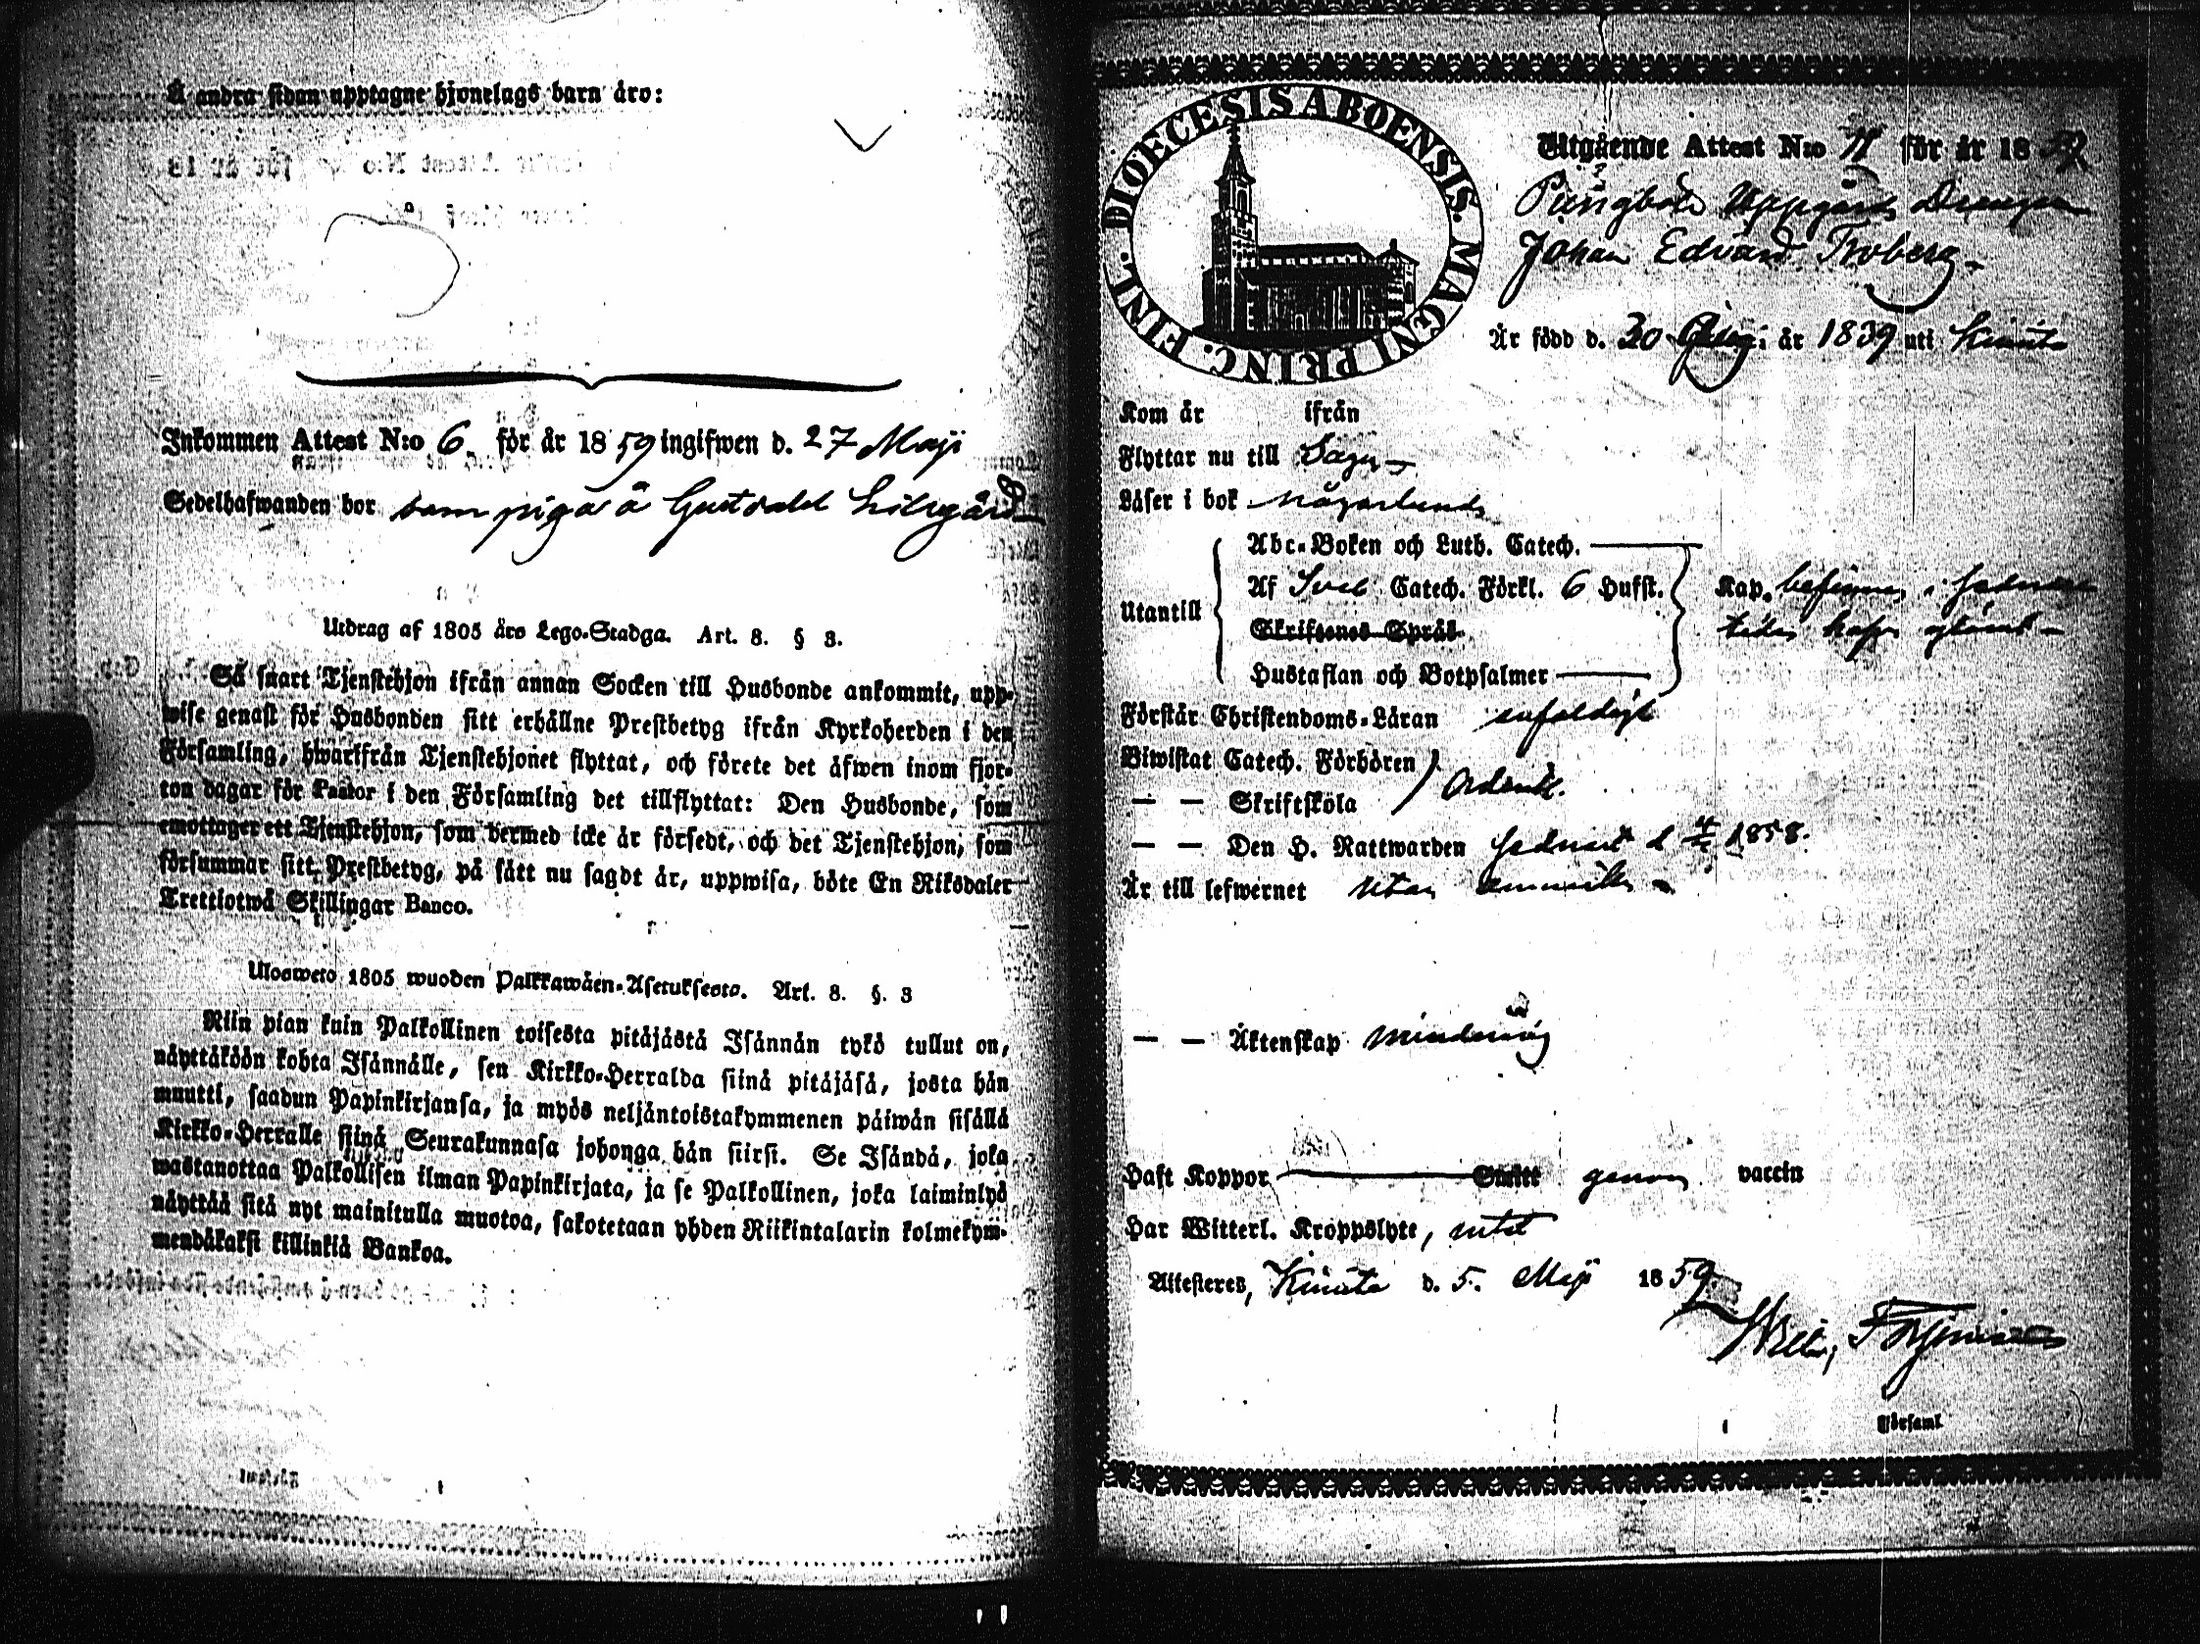 Å andra sidan upptagne hjonelags barn äro:
Inkommen Attest N:o 6 för år 1859 ingifwen d. 27 Maji
Sedelhafwanden bor som piga å Gutsdal Lillegård
Utdrag af 1805 års Lego-Stadga. Art. 8. § 3.
Så snart Tjenstehjon ifrån annan Socken till Husbonde ankommit, upp-
wise genast för Husbonden sitt erhållne Prestbetyg ifrån Kyrkoherden i den
Församling, hwarifrån Tjenstehjonet flyttat, och förete det äfwen inom fjor-
ton dagar för Pastor i den Församling det tillflyttat: Den Husbonde, som
emottager ett Tjenstehjon, som dermed icke är försedt, och det Tjenstehjon, som
försummar sitt Prestbetyg, på sätt nu sagdt är, uppwisa, böte En Riksdaler
Trettiotwå Skillingar Banco.
Ulosweto 1805 wuoden Palkkawäen-Asetuksesta. Art. 8. §. 3
Niin pian kuin Palkollinen toisesta pitäjästä Isännän tykö tullut on,
näyttäköön kohta Isännälle, sen Kirkko-Herralda siinä pitäjäsä, josta hän
muutti, saadun Papinkirjansa, ja myös neljäntoistakymmenen päiwän sisällä
Kirkko-Herralle siinä Seurakunnasa johonga hän siirsi. Se Isändä, joka
wastanottaa Palkollisen ilman Papinkirjata, ja se Palkollinen, joka laiminlyö
näyttää sitä nyt mainitulla muotoa, sakotetaan yhden Riikintalarin kolmekym-
mendäkaksi killinkiä Bankoa.
DIOECESIS ABOENSIS. MAGNI PRINC. FINL.
Utgående Attest N:o 11 för år 1859
Uppgårds Drengen
Johan Edvard Froberg
Är född d. 30 år 1839 uti Kimito
Kom år ifrån
Flyttar nu till Sagu
Läser i bok någorlunda
Utantill
Abc-Boken och Luth. Catech.
Af Sveb Catech. Förkl. 6 Hufst.
Skriftenes Språk
Hustaflan och Botpsalmer
Kap. befinnes i
Förstår Christendoms-Läran enfaldigt
Biwistat Catech. Förhören
— — Skriftskola
Ordentl.
— — Den H. Nattwarden sednast d 1858.
Är till lefwernet utan
— — Äktenskap minderårig
Haft Koppor Smitt genom vaccin
Har Witterl. Kroppslyte, intet
Attesteras, Kimito d. 5. Maji 1859
Församl